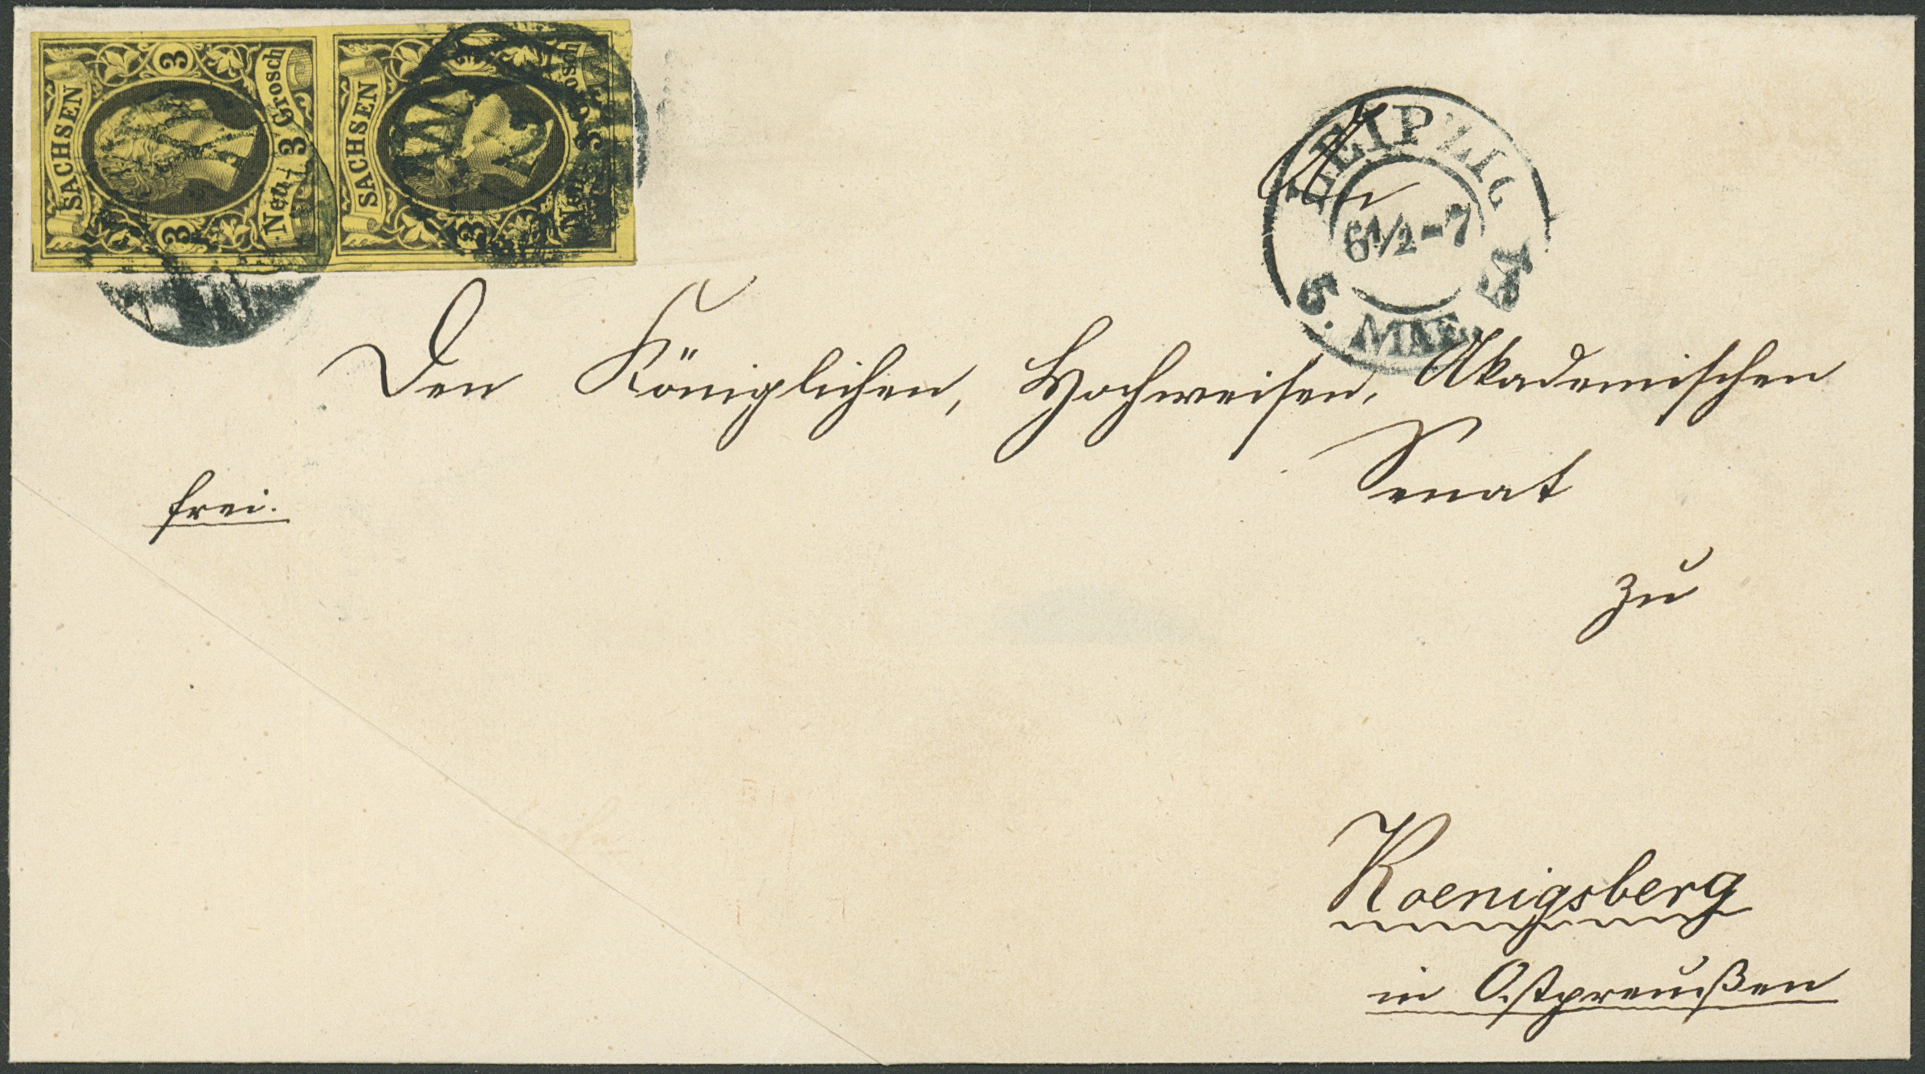 SACHSEN
3
3
Neu- 3 Grosch
SACHSEN
3
LEIPZIG
6½-7
5. MAE. 54
Den Königlichen, Hochweisen, Akademischen
Senat
frei.
zu
Koenigsberg
in Ostpreußen